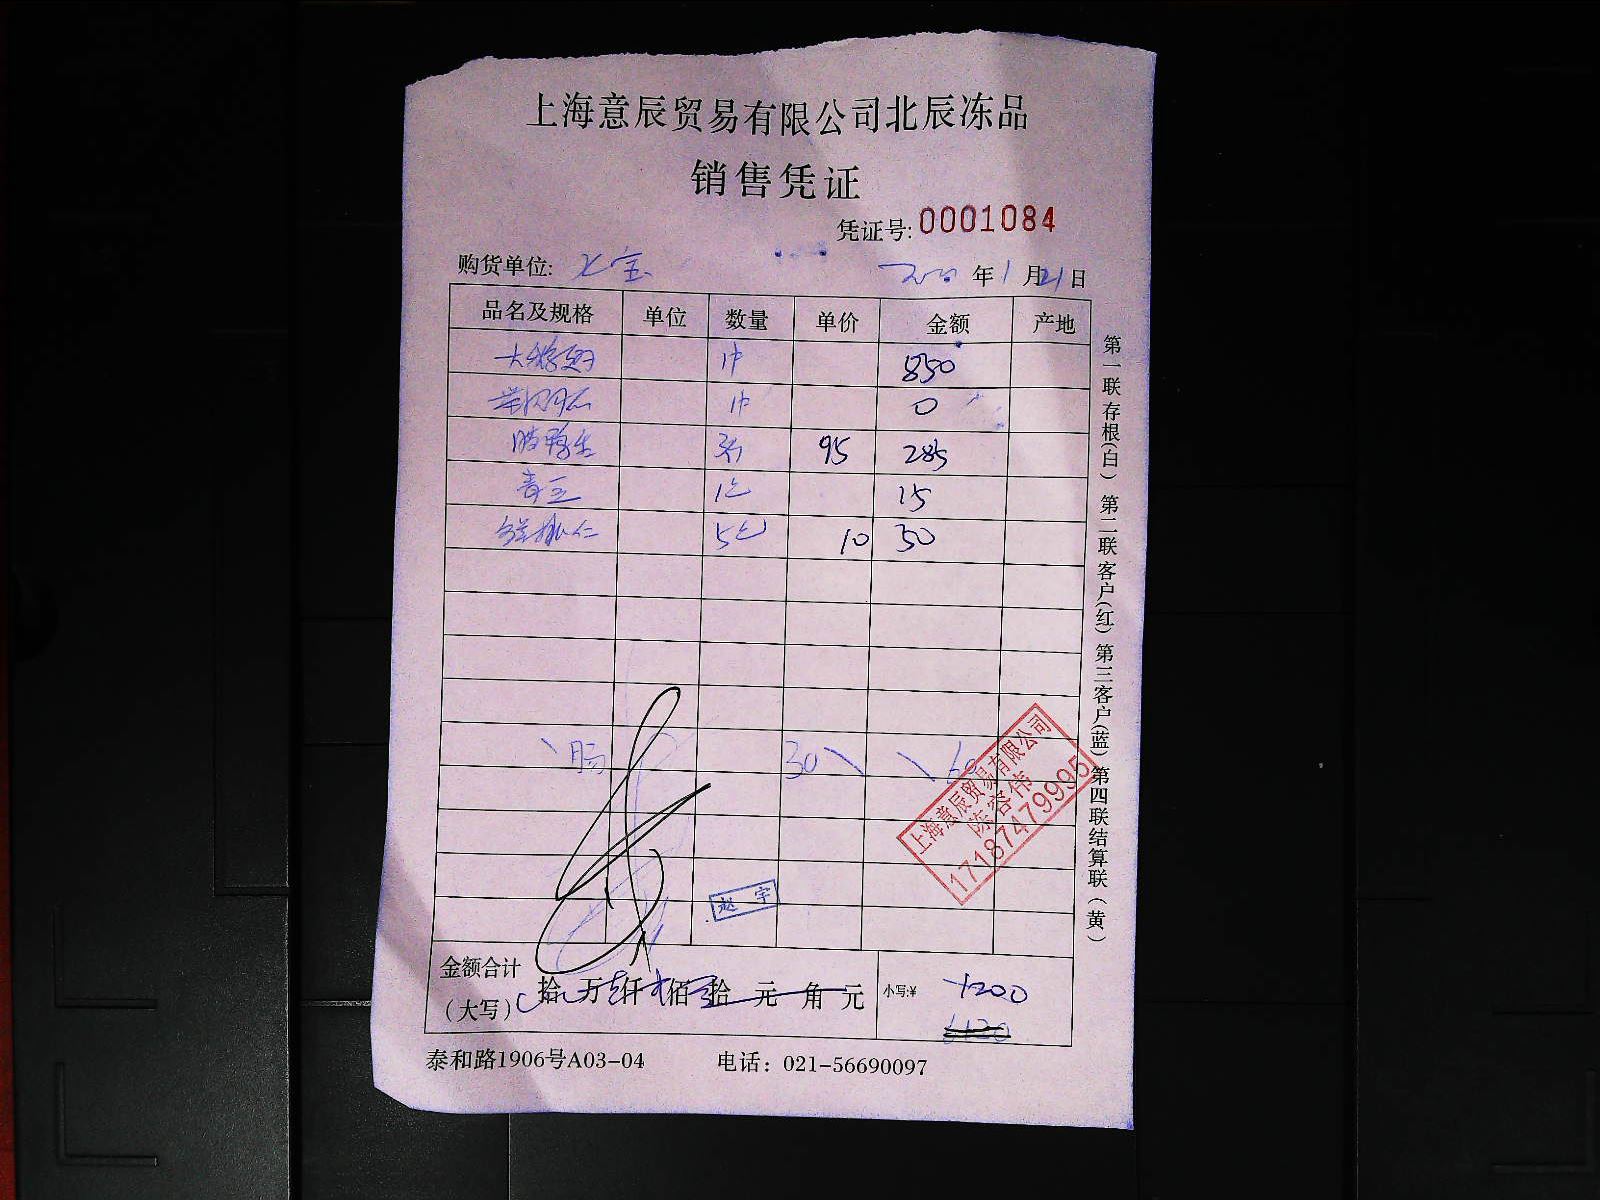 上海意辰贸易有限公司北辰冻品
销售凭证
凭证号: 0001084
购货单位: 年1月21日
品名及规格 单位 数量 单价 金额 产地
1件 850
1件 0
3 95 285
青豆 1包 15
5包 10 50
肠 30 60
上海意辰贸易有限公司
17187479995
赵宇
金额合计
(大写) 拾 万 仟 佰 拾 元 角 元 小写:¥ 1200
泰和路1906号A03-04 电话: 021-56690097
第一联存根(白) 第二联客户(红) 第三客户(蓝) 第四联结算联(黄)